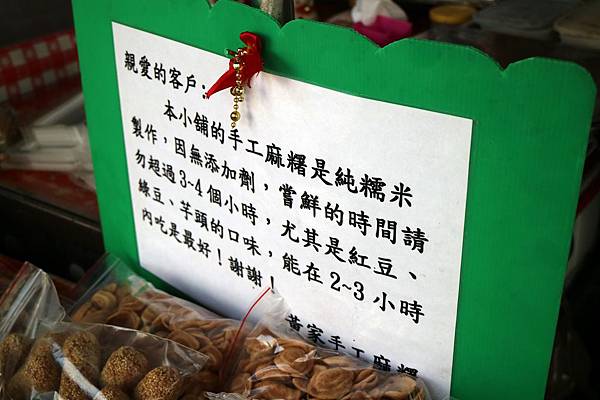 親愛的客戶:
本小舖的手工麻糬是純糯米
製作,因無添加劑,嘗鮮的時間請
勿超過3~4個小時,尤其是紅豆、
綠豆、芋頭的口味,能在2~3小時
內吃是最好!謝謝!
黃家手工麻糬